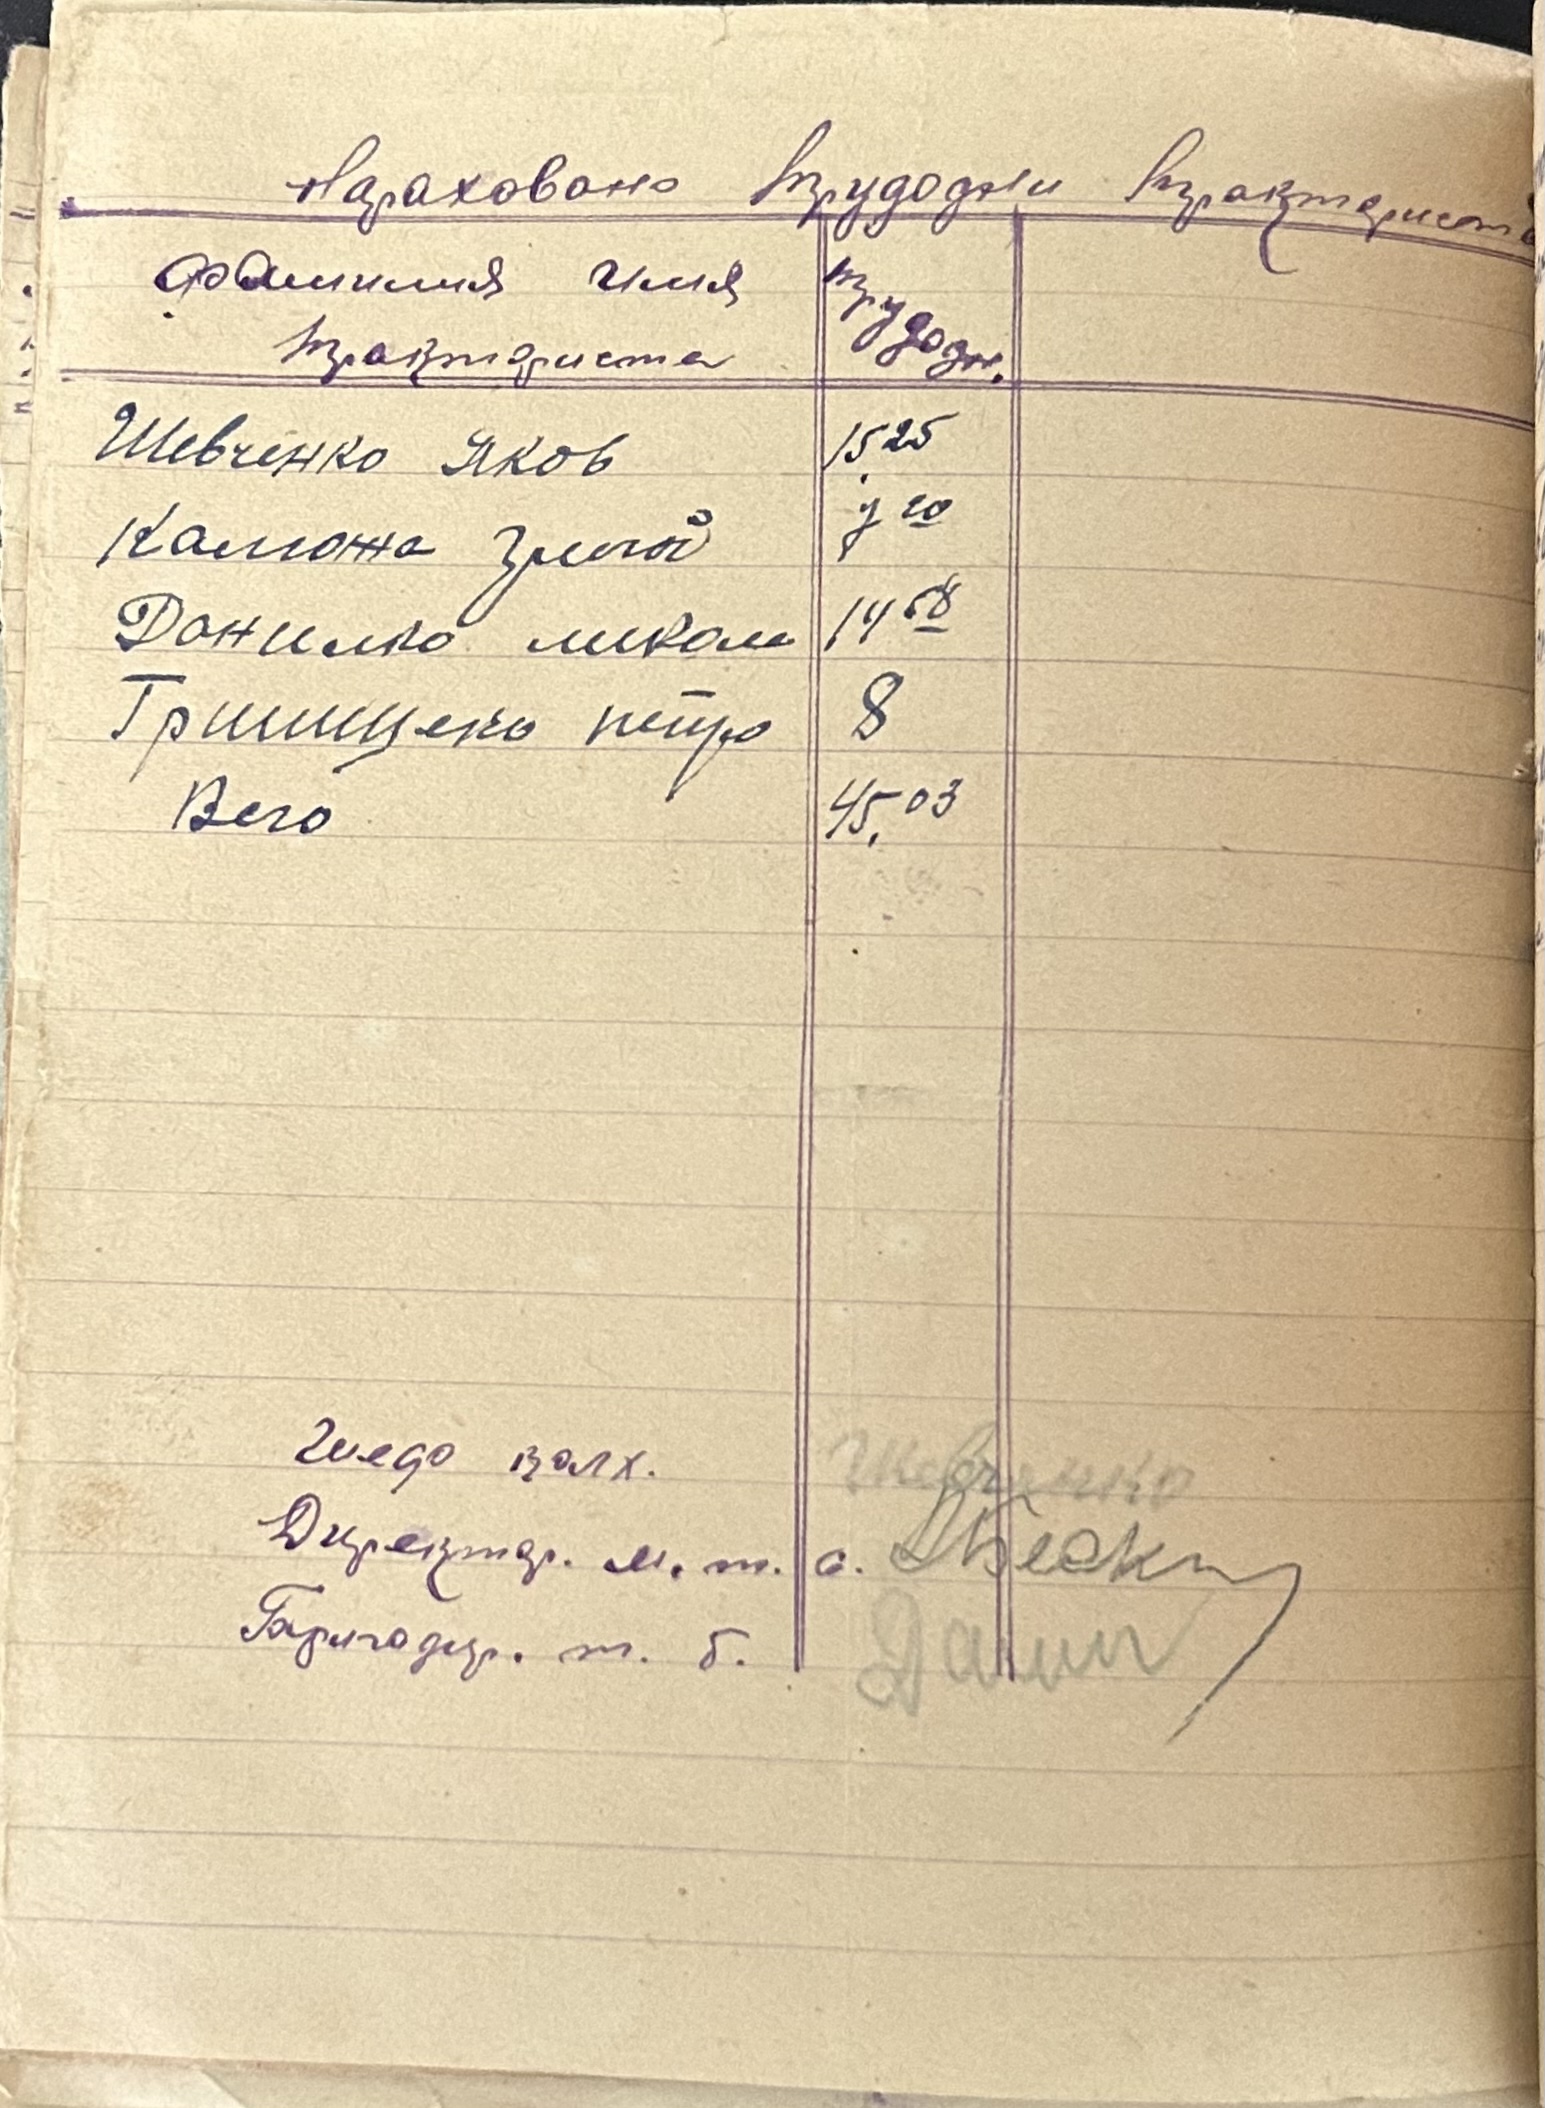 Нараховано трудодни трактарист
Фамилия имя трудодн.
трактариста
Шевченко Яков 15,25
Калюжа 7 20
Данилко микола 14 58
Гришщенко петро 8
Всего 45,03
голх. Шевченко
Директар. м. т. с.
Бригадир. т. б. Данил